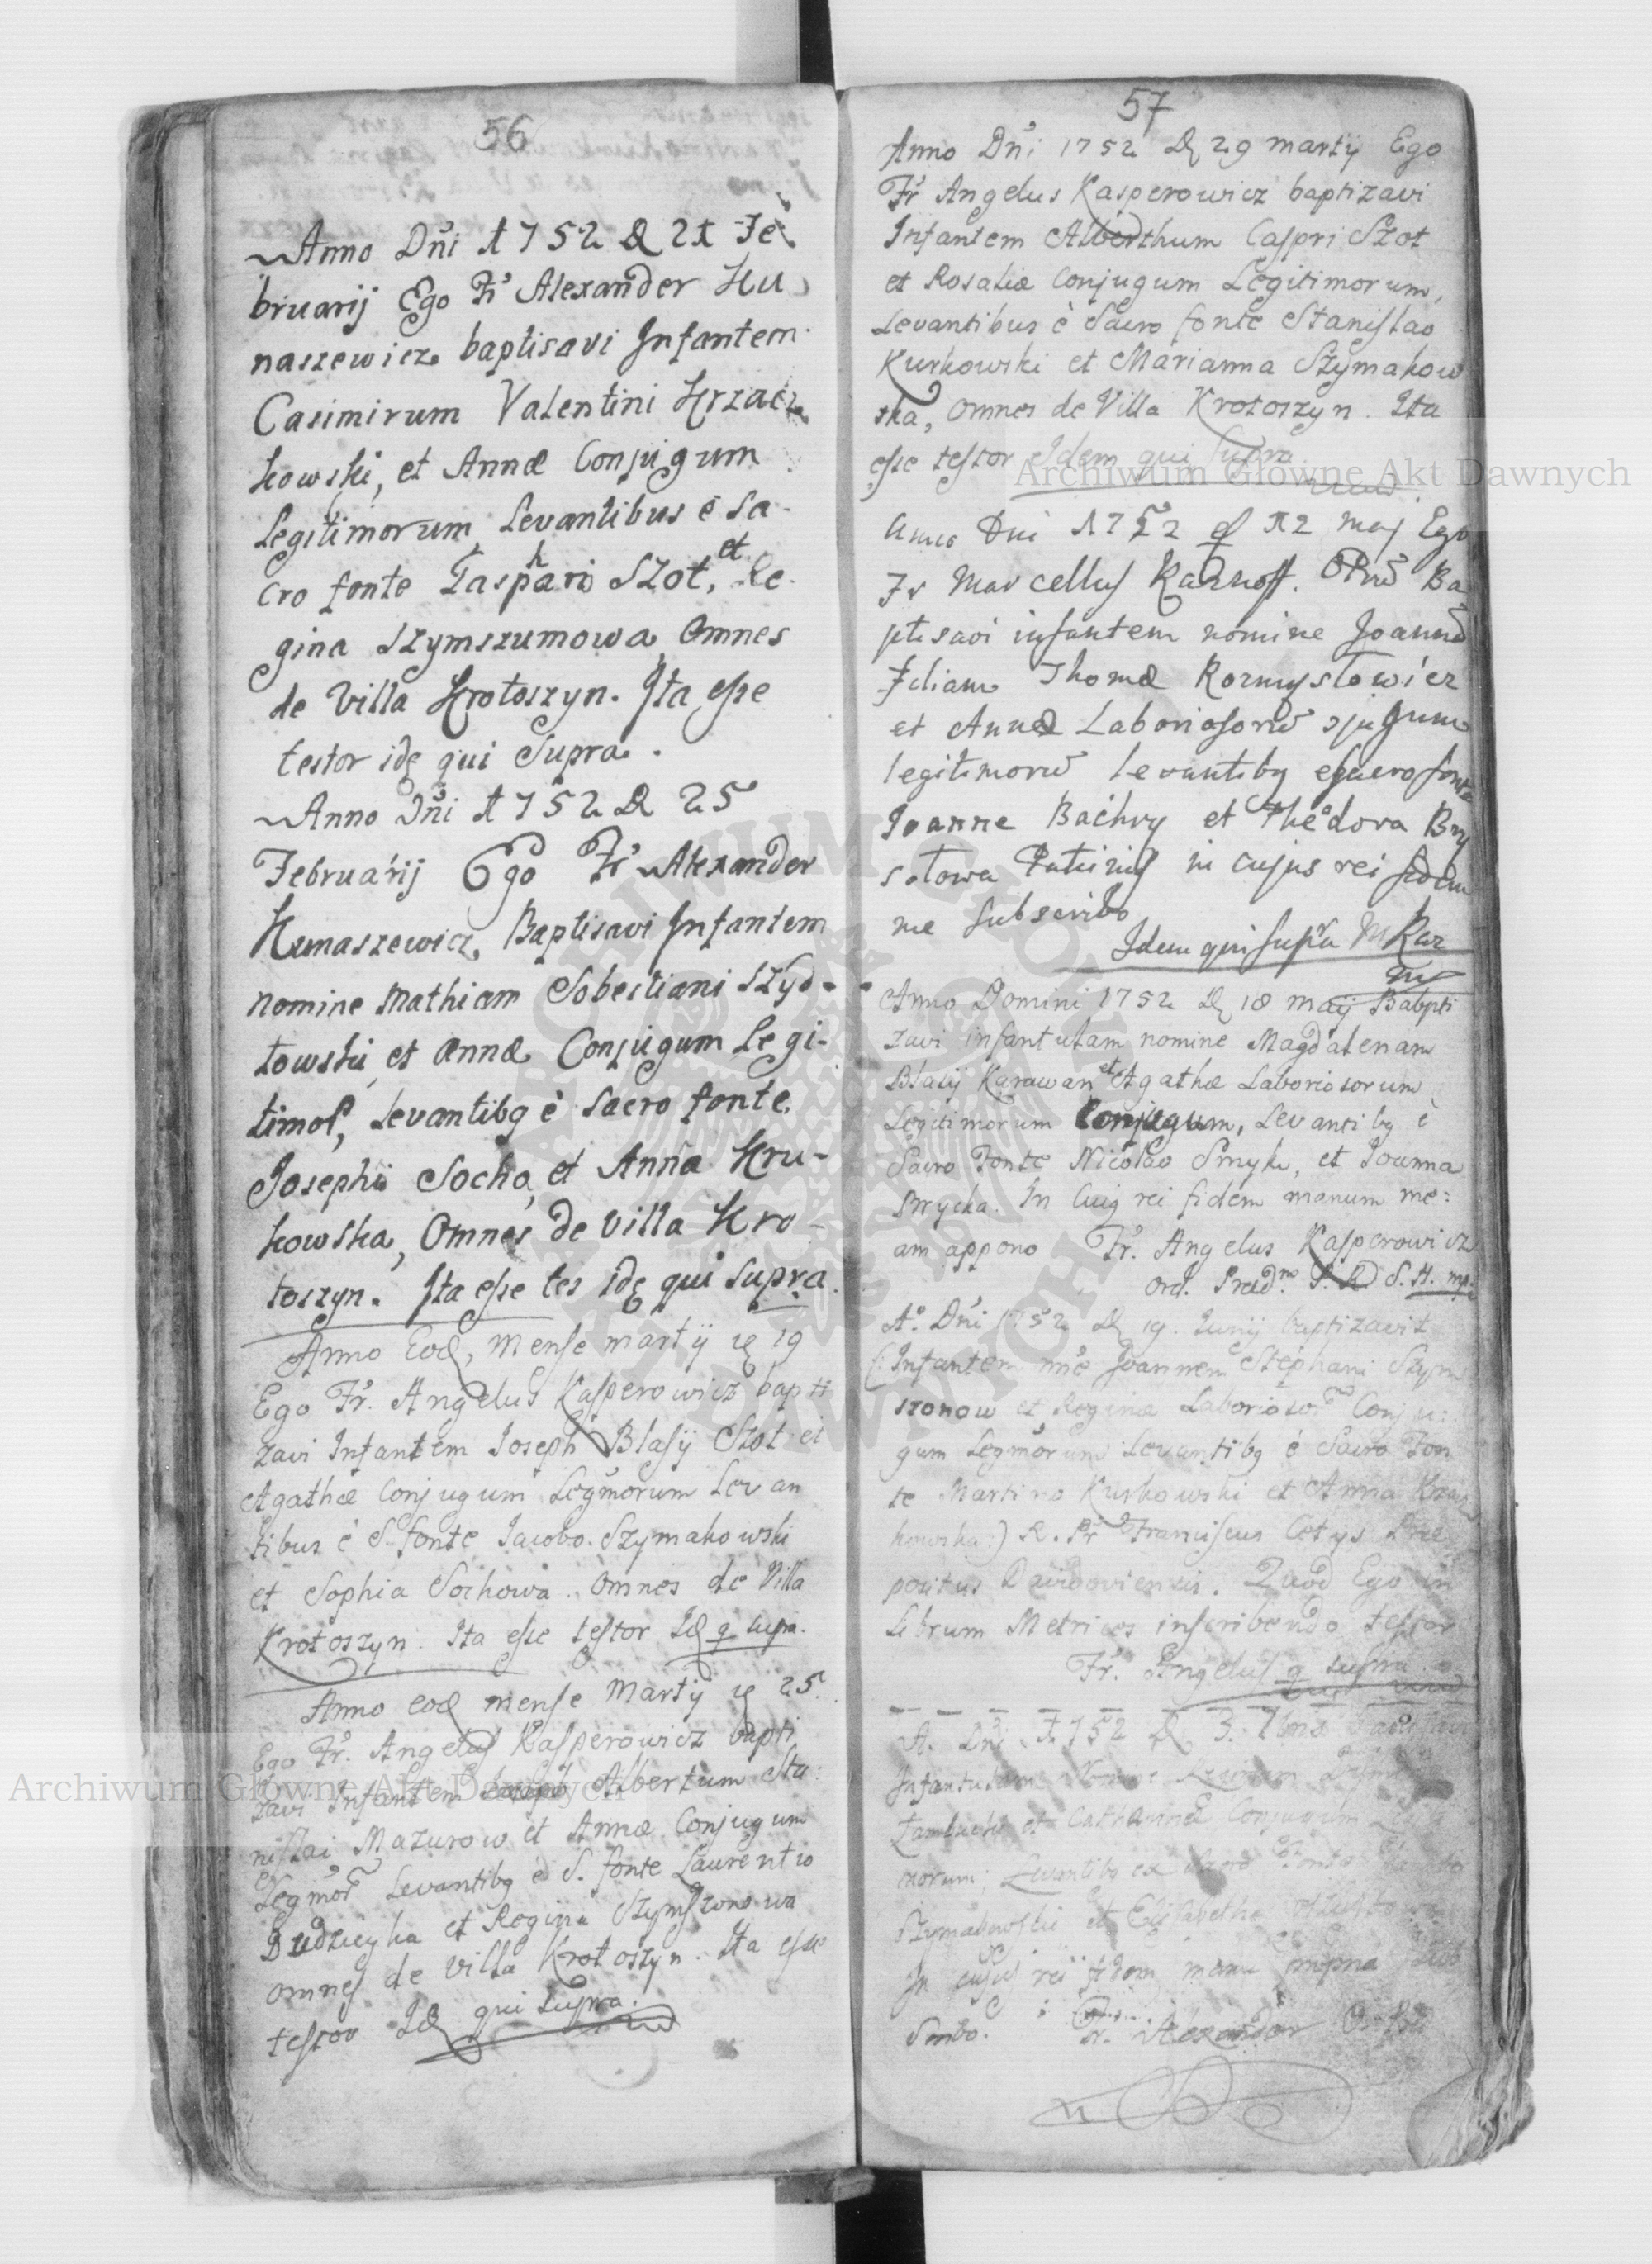 56
Anno Dñi 1752 D 21 Fe
bruarij Ego Fr Alexander Hu
naszewicz baptisavi Infantem
Casimirum Valentini Krzacz
kowski, et Annæ Conjugum
Legitimorum, Levantibus è Sa-
cro fonte Gasphari Szot, et Re
gina Szymszumowa, Omnes
de Villa Krotoszyn. Ita esse
testor idę qui Supra.
Anno Dñi 1752 D 25
Februarij Ego Fr Alexander
Hunaszewicz, Baptisavi Infantem
nomine Mathiam Sobestiani Szyd-
łowski, et Annæ Conjugum Legi-
timoȓ, Levantibg è Sacro fonte,
Josephi Socha, et Anña Kru-
kowska, Omnes de Villa Kro-
toszyn. Ita esse tes idę qui Supra.
Anno Eod, Mense Martij D 19
Ego Fr. Angelus Kasperowicz bapti
zavi Infantem Joseph Blasij Szot et
Agathæ Conjugum Legmorum Levan
tibus è S. fonte Jacobo Szymakowski
et Sophia Sochowa. Omnes de Villa
Krotoszyn. Ita esse testor Id q supra.
Anno eod mense Martij D 25.
Ego Fr. Angelus Kasperowicz bapti
zavi Infantem Albertum Sta:
nislai Mazurow et Annæ Conjugum
Legmor Levantibg è S. fonte Laurentio
Budzieyka et Regina Szymszonowa
omnes de villa Krotoszyn. Ita esse
testor Id qui supra.
57
Anno Dñi 1752 D 29 martij Ego
Fr Angelus Kasperowicz baptizavi
Infantem Alberthum Caspri Szot
et Rosaliæ Conjugum Legitimorum,
Levantibus è Sacro fonte Stanislao
Kurkowski et Marianna Szymakow
ska, Omnes de Villa Krotoszyn. Ita
esse testor Idem qui supra.
Anno Dni 1752 d 12 Maj Ego
Fr Marcellus Ba
ptisavi infantem nomine Joannã
Filiam Thomæ Rozmysłowicz
et Annæ Laboriosorũ jugum
legitimorũ levantibg e sacro fonte
Joanne Bachry et Theodora Bry
sołowa in cujus rei fidem
me Subscribo
Idem qui supra M Kaz
Anno Domini 1752 D 18 Maij Babpti
zavi infantulam nomine Magdalenam
Blasij Karawan et Agathæ Laboriosorum
Legitimorum Conjugum, Levantibg è
Sacro Fonte Nicolao Smyk, et Joanna
Brycka. In Cuig rei fidem manum me:
am appono Fr. Angelus Kasperowicz
Ord. Præd. S. H. mp.
Aº. Dñi 1752 D 19. Junij baptizavit
(: Infantem Joannem Stephani Szym
szonow et Reginæ Laborioso Conju:
gum Legmorum Levantibg è Sacro Fon
te Martino Kurkowski et Anna Krzacz
kowska:) R. Pr Franciscus Cetys Præ
positus. Quod Ego in
Librum Metrices inscribendo testor
Fr. Angelus q supra.
A. Dni 1752 D 3. 7bris
Infantulam Nomine
et Catharinæ Conjugum Legiti
morum; Levantibg ex Sacro Fonte
Szymakowski et Elisabetha
In cujus rei fidem manu propria Sub
Scribo. Fr. Alexander
Archiwum Główne Akt Dawnych
Archiwum Główne Akt Dawnych
ARCHIWUM GŁÓWNE AKT DAWNYCH